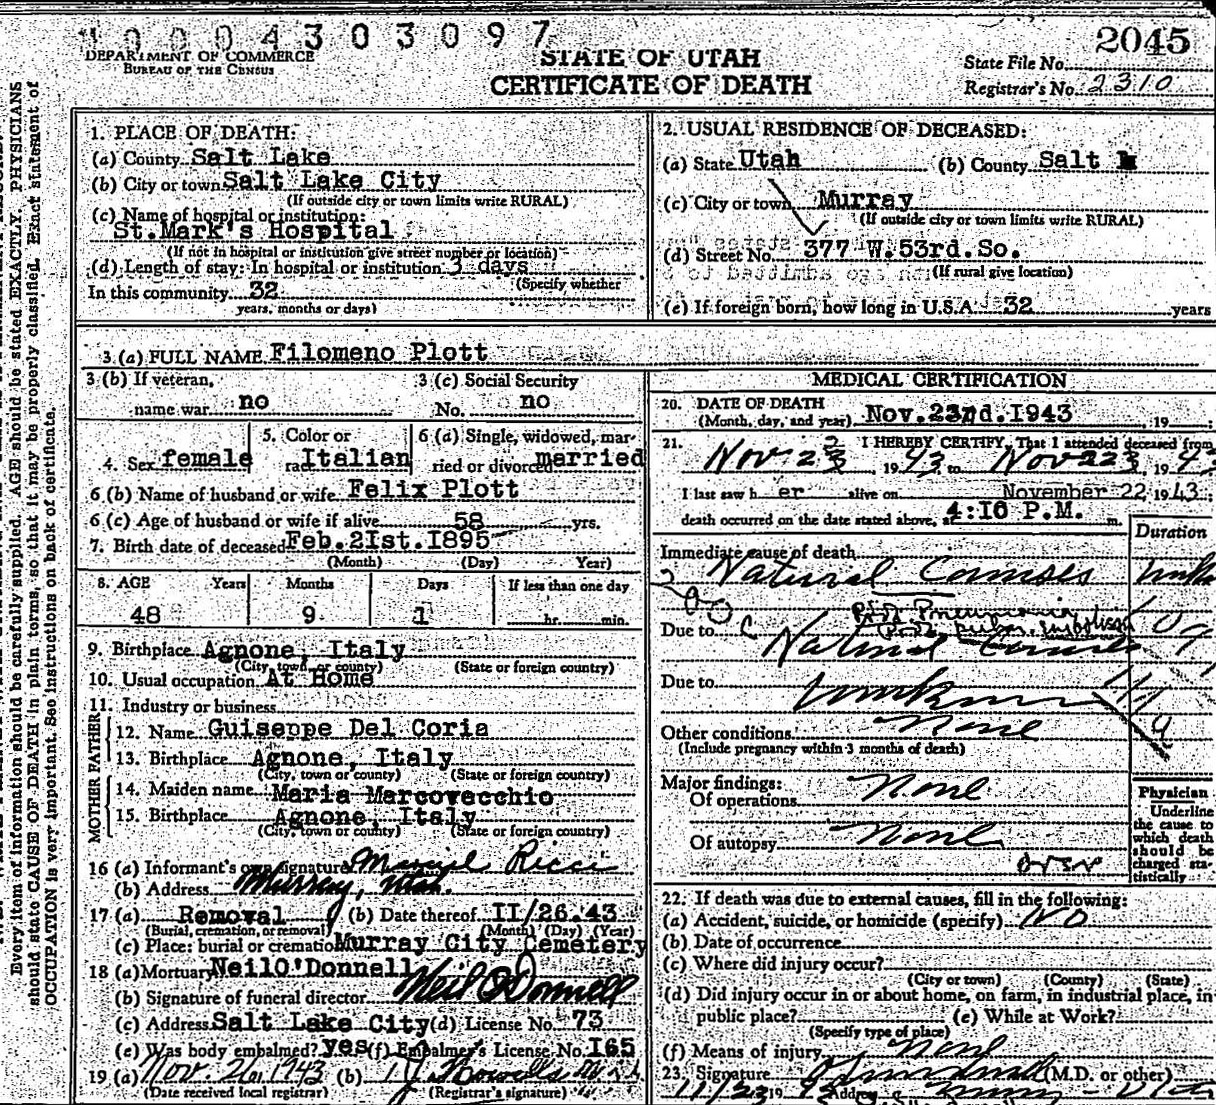 0004303097
2045
DEPARTMENT OF COMMERCE
BUREAU OF THE CENSUS
STATE OF UTAH
CERTIFICATE OF DEATH
State File No.
Registrar's No. 2310
Every item of information should be carefully supplied. AGE should be stated EXACTLY. PHYSICIANS
should state CAUSE OF DEATH in plain terms, so that it may be properly classified. Exact statement of
OCCUPATION is very important. See instructions on back of certificate.
1. PLACE OF DEATH:
(a) County Salt Lake
(b) City or town Salt Lake City
(If outside city or town limits write RURAL)
(c) Name of hospital or institution:
St.Mark's Hospital
(If not in hospital or institution give street number or location)
(d) Length of stay: In hospital or institution 3 days
(Specify whether
In this community 32
years, months or days)
2. USUAL RESIDENCE OF DECEASED:
(a) State Utah (b) County Salt
(c) City or town Murray
(If outside city or town limits write RURAL)
(d) Street No. 377 W.53rd.So.
(If rural give location)
(e) If foreign born, how long in U.S.A. 32 years
3 (a) FULL NAME Filomeno Plott
3 (b) If veteran, 3 (c) Social Security
name war no No. no
5. Color or 6 (a) Single, widowed, mar-
4. Sex female race Italian ried or divorced married
6 (b) Name of husband or wife Felix Plott
6 (c) Age of husband or wife if alive 58 yrs.
7. Birth date of deceased Feb.2Ist.I895
(Month) (Day) Year)
8. AGE Years Months Days If less than one day
48 9 1 hr. min.
9. Birthplace Agnone, Italy
(City, town, or county) (State or foreign country)
10. Usual occupation At Home
11. Industry or business
FATHER
12. Name Guiseppe Del Coria
13. Birthplace Agnone, Italy
(City, town or county) (State or foreign country)
MOTHER
14. Maiden name Maria Marcovecchio
15. Birthplace Agnone, Italy
(City, town or county) (State or foreign country)
16 (a) Informant's own signature Ricci
(b) Address Murray, Utah.
17 (a) Removal (b) Date thereof II/26.43
(Burial, cremation, or removal) (Month) (Day) (Year)
(c) Place: burial or cremation Murray City Cemetery
18 (a) Mortuary NeilO'Donnell
(b) Signature of funeral director Neil O'Donnell
(c) Address Salt Lake City (d) License No. 73
(e) Was body embalmed? yes (f) Embalmer's License No. I65
19 (a) Nov. 26, 1943 (b)
(Date received local registrar) (Registrar's signature)
MEDICAL CERTIFICATION
20. DATE OF DEATH
(Month, day, and year) Nov.22nd.I943, 19
21. I HEREBY CERTIFY, That I attended deceased from
Nov 1943 to Nov 1943
I last saw her alive on November 22, 1943;
death occurred on the date stated above, at 4:10 P.M. m.
Duration
Immediate cause of death
Natural Causes
Pneumonia
Due to Natural Causes
Due to unknown
Other conditions None
(Include pregnancy within 3 months of death)
Major findings:
Of operations None
Of autopsy None
over
Physician
Underline
the cause to
which death
should be
charged sta-
tistically
22. If death was due to external causes, fill in the following:
(a) Accident, suicide, or homicide (specify) No
(b) Date of occurrence
(c) Where did injury occur?
(City or town) (County) (State)
(d) Did injury occur in or about home, on farm, in industrial place, in
public place? (e) While at Work?
(Specify type of place)
(f) Means of injury None
23. Signature (M.D. or other)
11/23 1943 Address